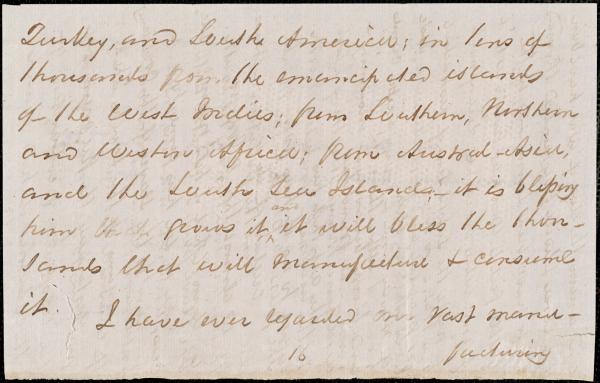 Turkey, and South America; in tens of
thousands from the emancipated islands
of the West Indies; from Southern, Northern
and Western Africa; from Austral-Asia,
and the South Sea Islands,- it is blessing
him that grows it, and it will bless the thou-
sands that will manufacture & consume
it. I have ever regarded our vast manu-
16 facturing